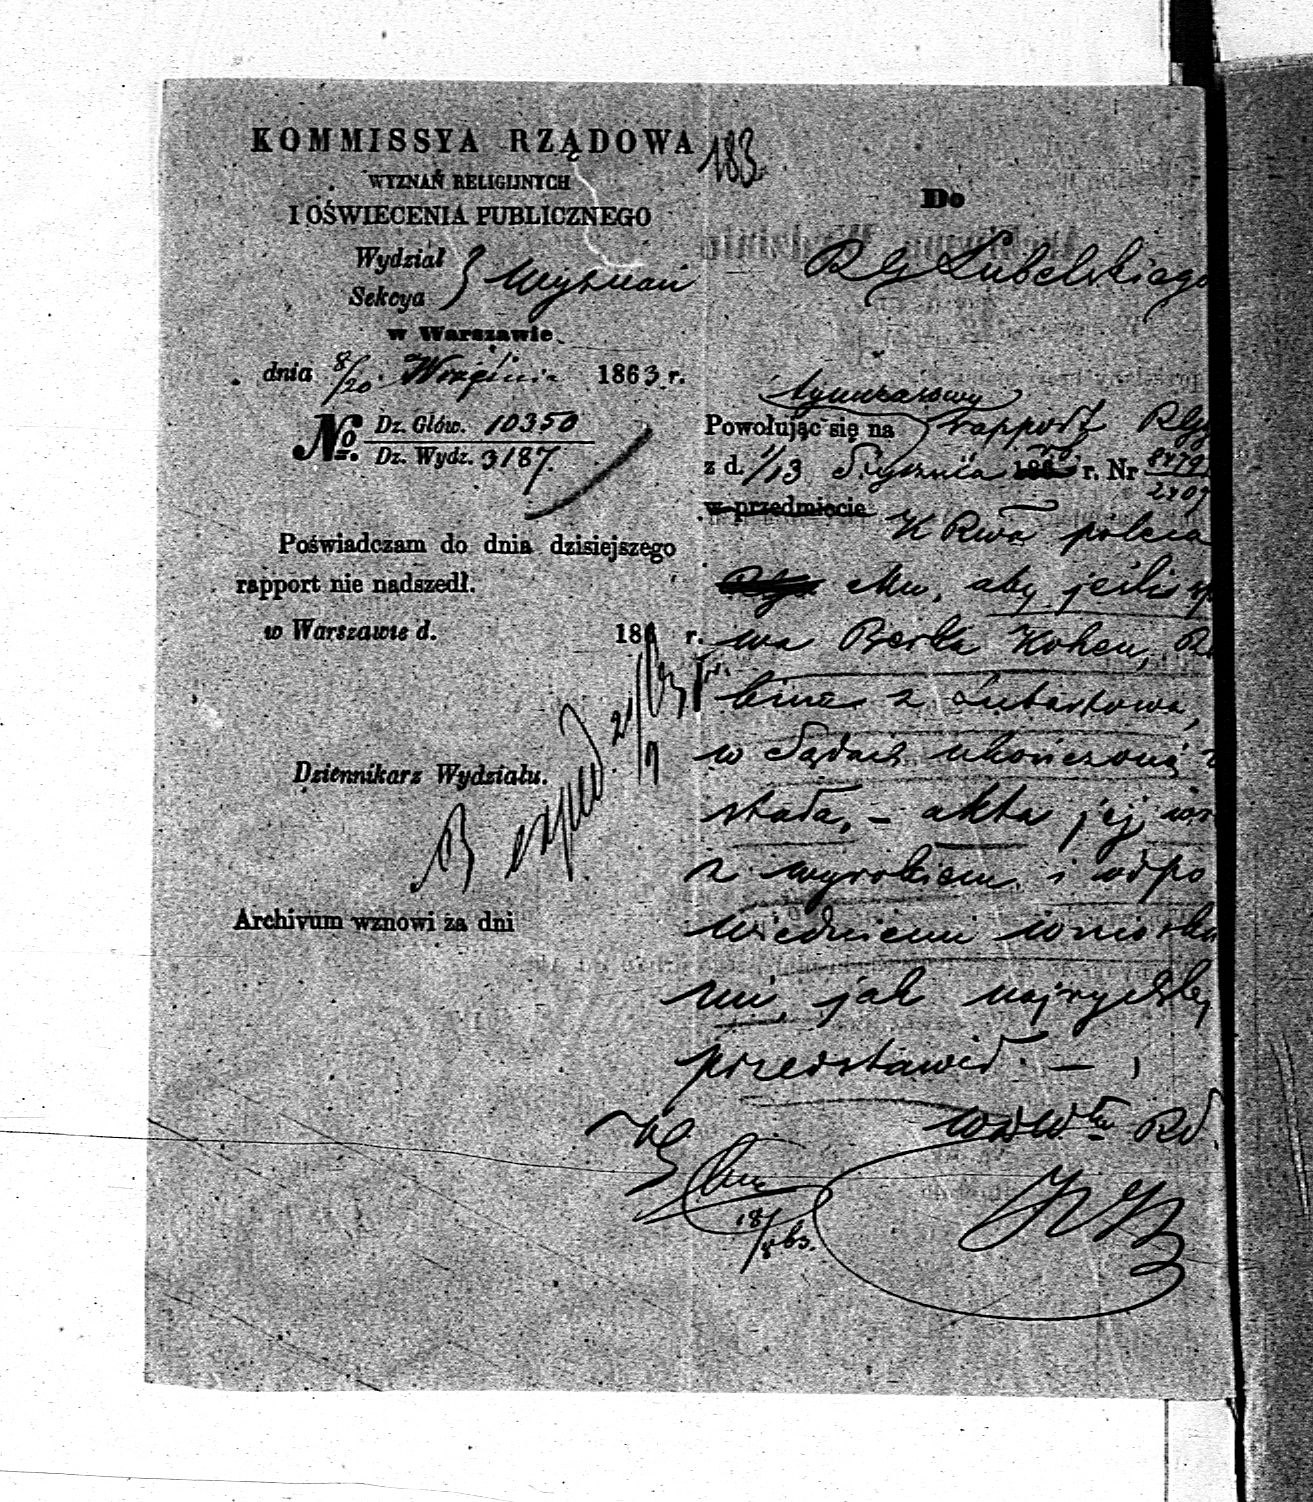 KOMMISSYA RZĄDOWA
WYZNAŃ RELIGIJNYCH
I OŚWIECENIA PUBLICZNEGO
Wydział
Sekcya } Wyznań
w Warszawie
dnia 8/20 Września 1863 r.
No. Dz. Głów. 10350
Dz. Wydz. 3187.
Poświadczam do dnia dzisiejszego
rapport nie nadszedł.
w Warszawie d. 186 r.
Dziennikarz Wydziału.
Archivum wznowi za dni
183
Do
RG Lubelskiego
tymczasowy
Powołując się na rapport RG
z d. 1/13 Stycznia r. Nr
w przedmiocie
K Rwa poleca
aby jeśli
wa Berka Kohen,
bina z Lubartowa,
w Sądach ukończoną
stała, – akta jej
z wyrokiem i odpo
wiedniemi wnioska
mi jak najrychlej
przedstawił. –
18/8 63.